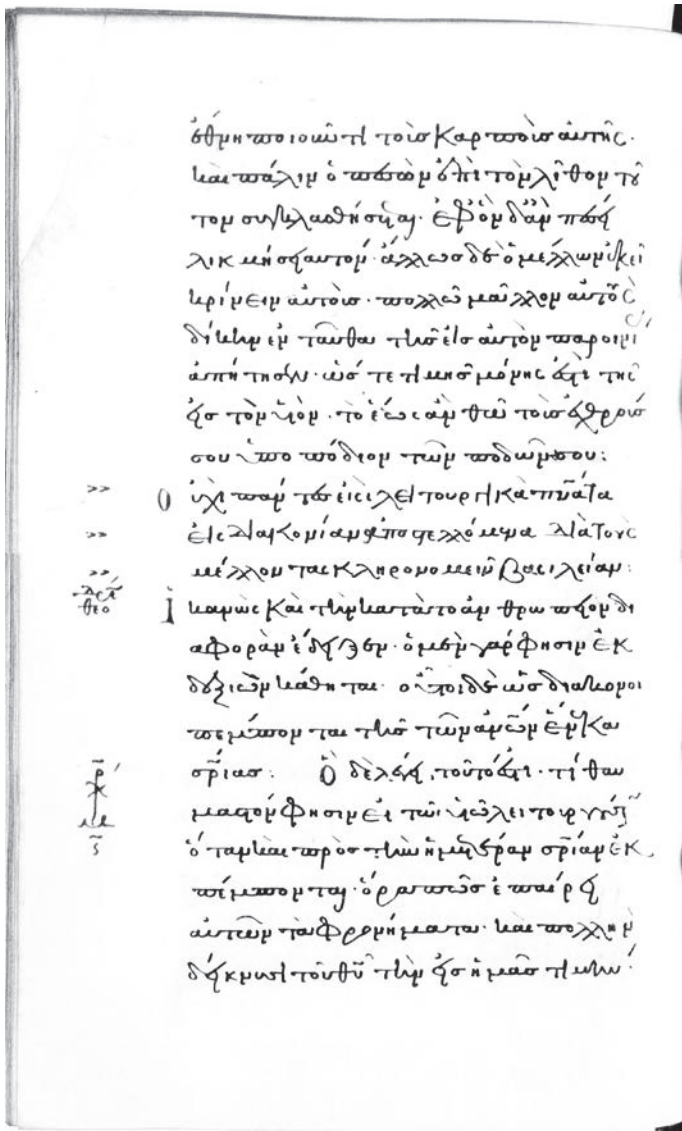 ἔθνη ποιοῦντι τοὺς καρποὺς αὐτῆς·
καὶ πάλιν ὁ πεσὼν ἐπὶ τὸν λίθον τοῦ
τον συνθλασθήσεται· ἐφ' ὃν δ' ἂν πέσῃ
λικμήσει αὐτόν· ἄλλως δὲ ὁ μέλλων ἐκεῖ
κρίνειν αὐτοὺς· πολλῷ μᾶλλον αὐτὸς
δίκην ἐνταῦθα τῆς εἰς αὐτὸν παροινί
ας ἀπῄτησεν· ὥστε τιμῆς μόνης ἐστὶ τῆς
εἰς τὸν υἱόν· τὸ ἕως ἂν θῶ τοὺς ἐχθρούς
σου ὑποπόδιον τῶν ποδῶν σου:
Οὐχὶ πάντες εἰσὶ λειτουργικὰ πνατα
εἰς διακονίαν ἀποστελλόμενα διὰ τοὺς
μέλλοντας κληρονομεῖν βασιλείαν:
θεο
Ἱκανῶς καὶ τὴν κατὰ τὸ ἀνθρώπειον δι
αφορὰν ἔδειξεν· ὁ μὲν γάρ φησιν ἐκ
δεξιῶν κάθηται· οὗτοι δὲ ὡς διάκονοι
πέμπονται τῆς τῶν ἀνων ἕνεκα
σρίας: Ὃ δὲ λέγει, τοῦτό ἐστι· τί θαυ
μαστόν φησιν εἰ τῷ υἱῷ λειτουργοῦσι
ὅταν καὶ πρὸς τὴν ἡμετέραν σρίαν ἐκ
πέμπονται· ὅρα πῶς ἐπαίρει
αὐτῶν τὰ φρονήματα· καὶ πολλὴν
δείκνυσι τοῦ θυ τὴν εἰς ἡμᾶς τιμήν·